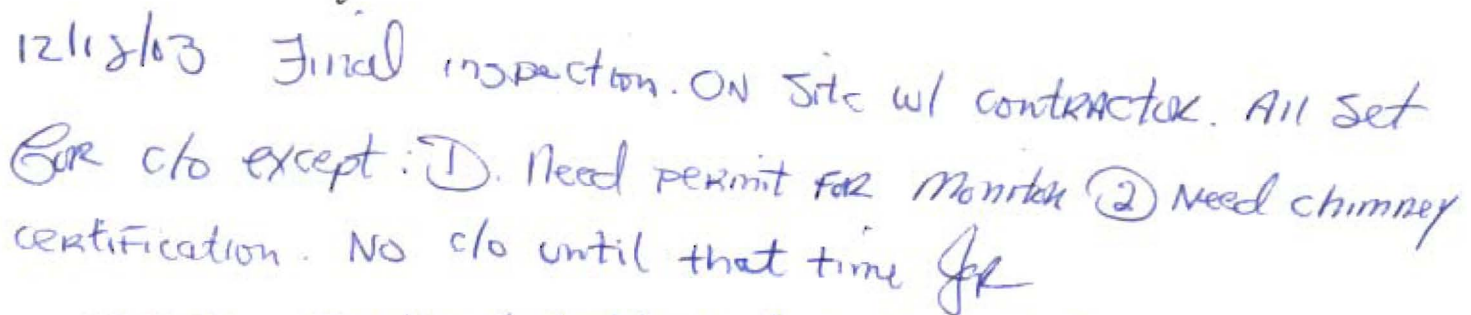 12/18/03 Final inspection. ON Site w/ contRActoR. All Set
FoR c/o except: ①. Need peRmit FoR Monitor ② Need chimney
ceRtiFication. No c/o until that time